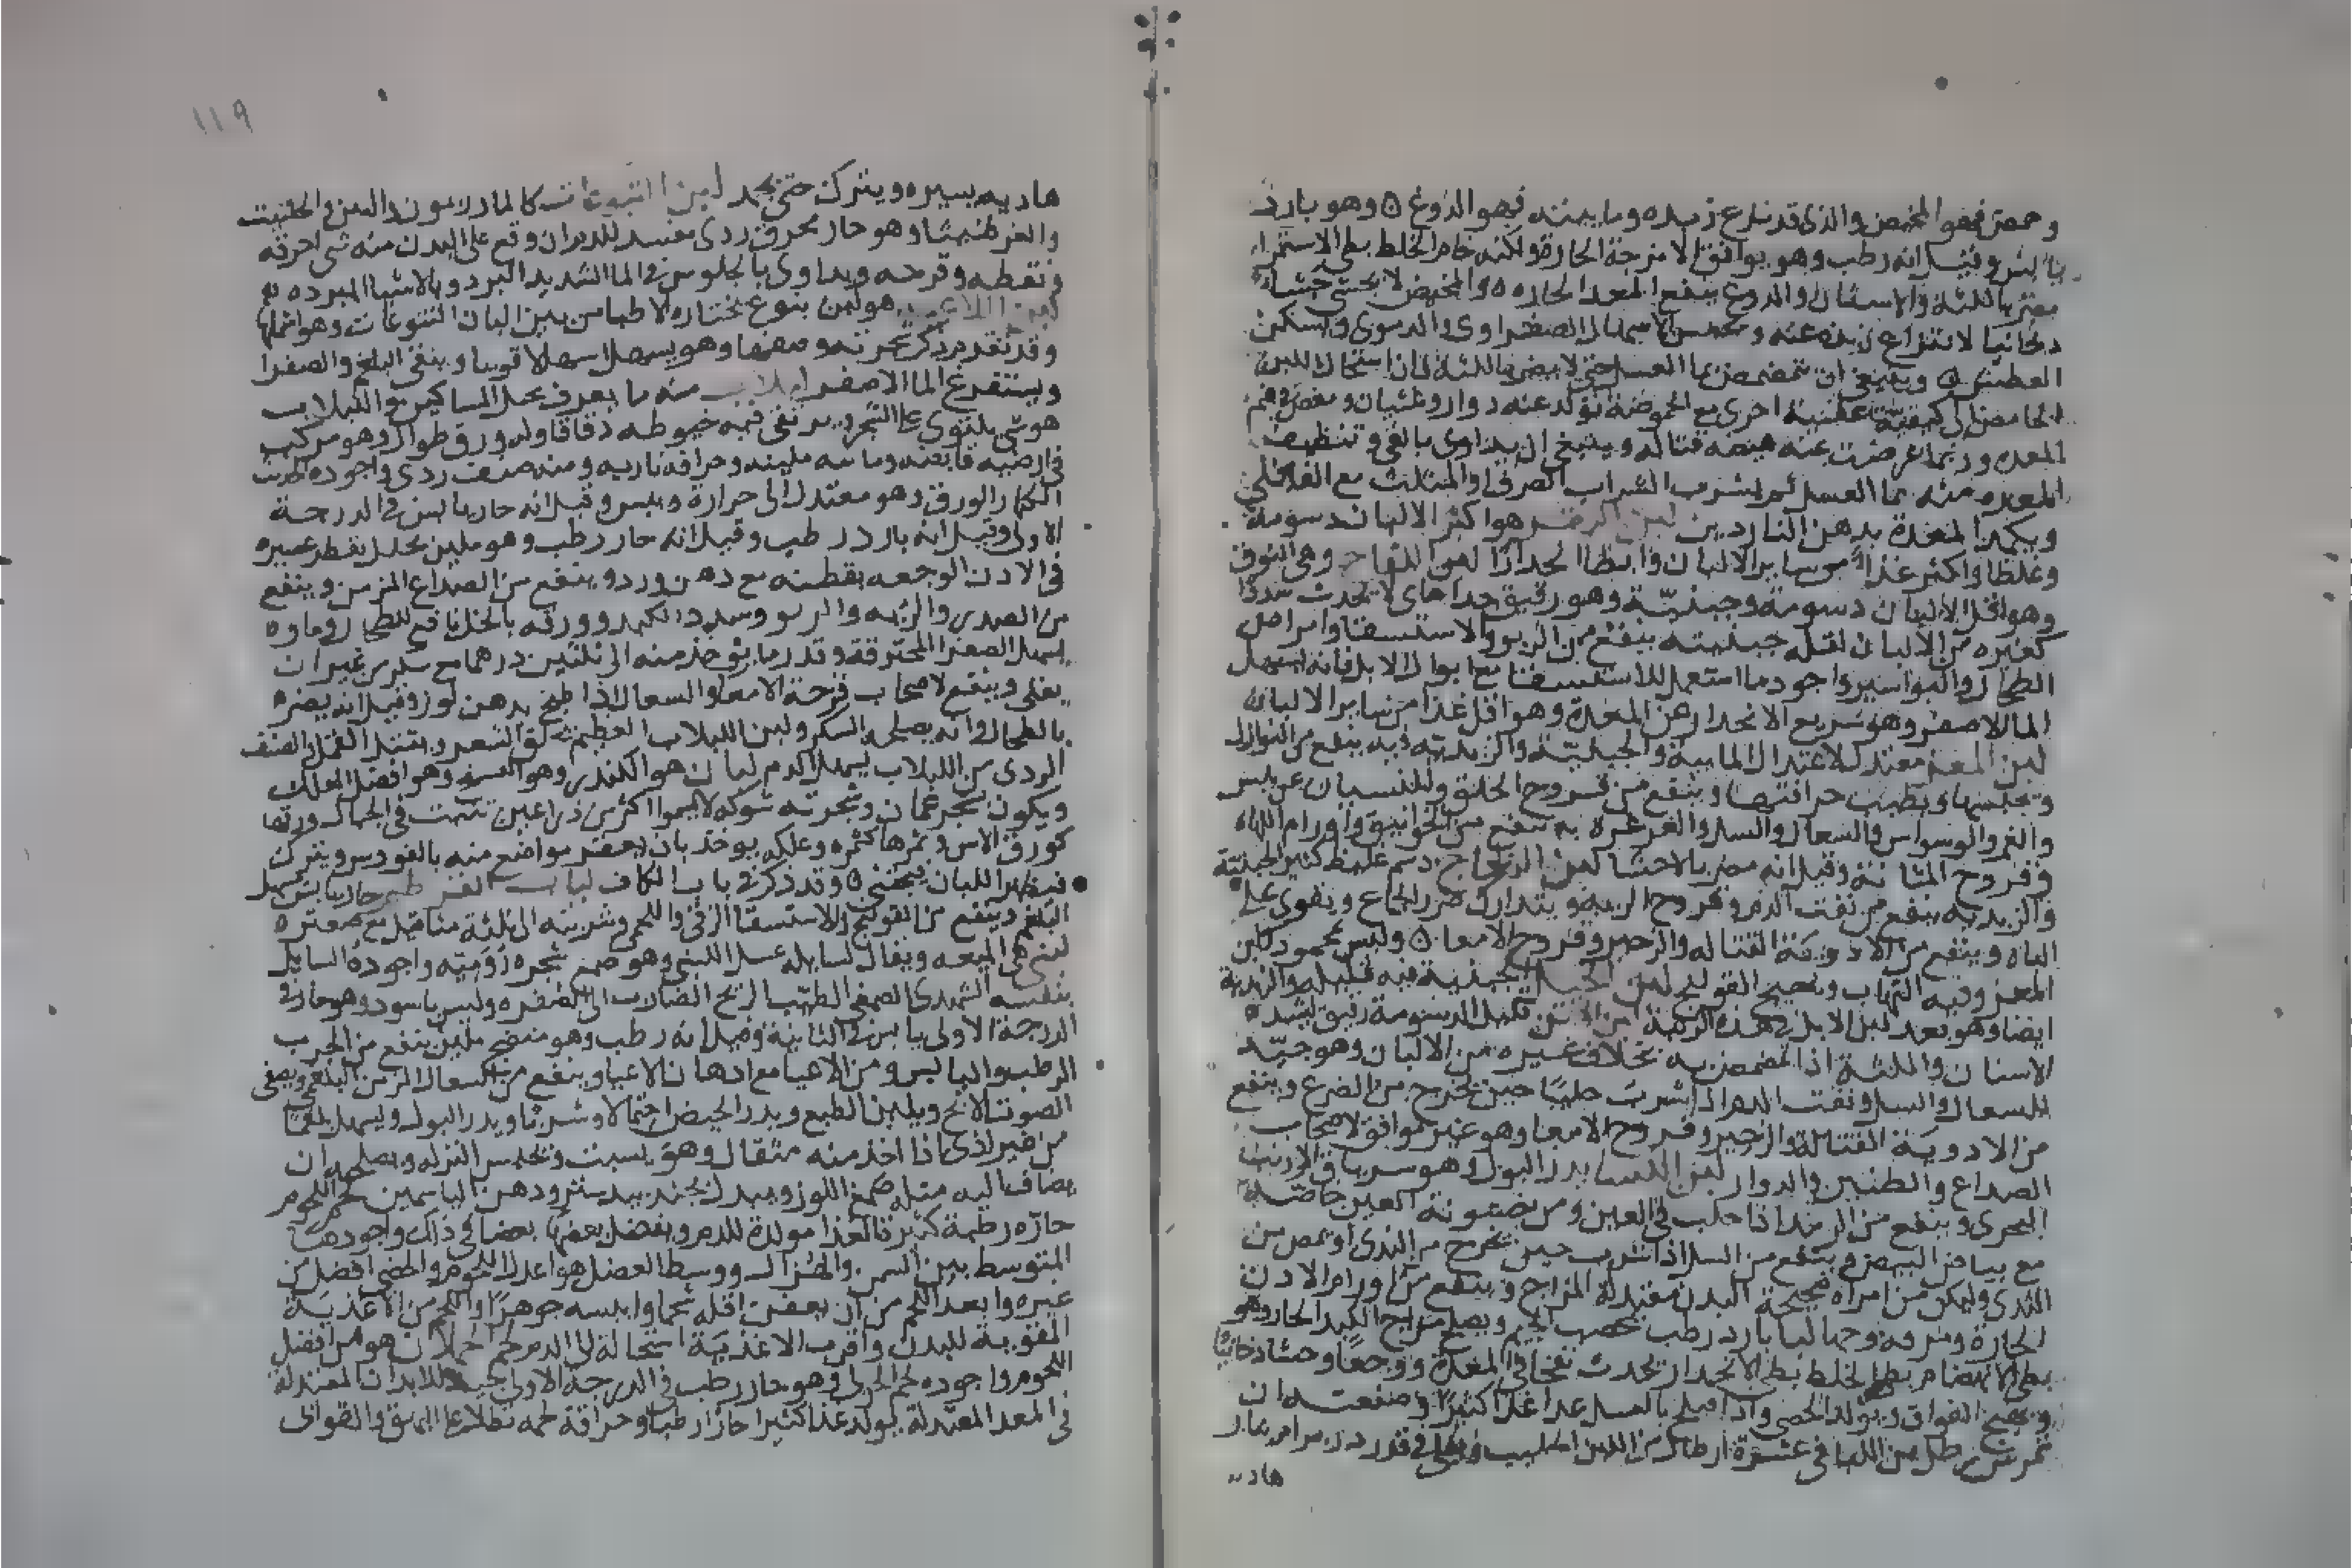 وحمض فهو المخيض والذي قد نزع زبده وما يمنته فهو الدوغ ٥ وهو بارد
يابس وقيل انه رطب وهو يوافق الامزجة الحارة ولكنه خام الخلط بطي الاستمراء
مضر باللثة والاسنان والدوغ ينفع المعد الحاره ٥ والمخيض لا يجشي جشاء
دخانيا لانتزاع زبده عنه و الاسهال الصفراوي والدموي ويسكن
العطش ٥ وينبغي ان تمضمض بما العسل حتى لا يضر باللثة فاذا استحال اللبن
الحامض الى كيفية عفنية اخرى مع الحموضة تولد عنه دوار وغثيان ومغص في فم
المعده وربما عرضت عنه هيضه قتاله وينبغي ان يداوى بالقي وتنظيف
المعده منه بما العسل ثم لشرب الشراب الصرف او المثلث مع الفلافلي
ويكمد المعدة بدهن الناردين لبن البقر هو اكثر الالبان دسومة
وغلظا واكثر غذاء من ساير الالبان وابطا انحدارا لبن اللقاح وهي النوق
وهو اقل الالبان دسومة وجبنية وهو رقيق جدا ماي لا يحدث سددا
كغيره من الالبان لقلة جبنيته ينفع من الربو والاستسقا وامراض
الطحال والبواسير واجود ما استعمل للاستسقا مع ابوال الابل فانه يسهل
الما الاصفر وهو سريع الانحدار عن المعدة وهو اقل غذا من ساير الالبان
لبن المعز معتدل لاعتدال المايية والجبنية والزبدية فيه ينفع من النوازل
وتحبسها ويطيب حرافتها وينفع من قروح الحلق وللنسيان عن يبس
والغم والوسواس والسعال والسل والغرغرة به تنفع من الخوانيق واورام اللهاة
وقروح المثانة وقيل انه مضر بالاحشا لبن النعاج دسم غليظ كثير الجبنية
والزبديه ينفع من نفث الدم وقروح الرية ويتدارك ضرر الجماع ويقوى على
الباه وينفع من الادوية القتاله والزحير وقروح الامعا ٥ وليس محمود كلبن
المعز وفيه التهاب ويهيج القولنج لبن الخيل الجبنية فيه قليله والزبدية
ايضا وهو بعد لبن الابل في هذه الرتبة لبن الاتن قليل الدسومة رقيق يشد
الاسنان واللثة اذا تمضمض به بخلاف غيره من الالبان وهو جيد
للسعال والسل ونفث الدم اذا شرب حليبا حين يخرج من الضرع وينفع
من الادوية القتالة والزحير وقروح الامعا وهو غير موافق لاصحاب
الصداع والطنين والدوار لبن النسا يدر البول وهو ترياق الارنب
البحري وينفع من الرمد اذا حلب في العين ومن خشونة العين خاصة
مع بياض البيض وينفع من السل اذا شرب حين يخرج من الثدي او يمص من
الثدي وليكن من امراه صحيحة البدن معتدلة المزاج وينفع من اورام الاذن
الحارة وقروحه لبا بارد رطب يخصب الجسم ويصلح مزاج الكبد الحار وهو
بطي الانهضام بطي الخلط بطي الانحدار يحدث نفخا في المعدة ووجعا وجشا دخانيا
ويهيج الفواق ويولد الحصى واذا اصلح بالعسل غدا غذا كثيرا وصنعته ان
تمرس رطل من اللبا في عشرة ارطال من اللبن الحليب في قدر
هاد
١١٩
هاديه يسيره ويترك حتى يجمد لبن اليتوعات كالمازريون والتين والحلتيت
والفرطنيثا وهو حار محرق ردي مفسد للبدن ان وقع على البدن منه شي احرقه
ونفطه وقرحه ويداوى بالجلوس في الما الشديد البرد وبالاشيا المبرده
لبن اللاعيه هو لبن يتوع تختاره الاطبا من بين البان اليتوعات وهو
وقد تقدم ذكر شجرته وصفتها وهو يسهل اسهالا قويا وينقي البلغم والصفرا
ويستفرغ الما الاصفر لبلاب منه ما يعرف بحبل المساكين واللبلاب
هو شي يلتوى على الشجر ويرتقى فيه خيوطه دقاقا وله ورق طوال وهو مركب
في ارضيه قابضه وماييه ملينه وحرافه ناريه ومنه صنف ردي واجوده الحديث
الكبار الورق وهو معتدل الى حرارة ويبس وقيل انه حار يابس في الدرجة
الاولى وقيل انه بارد رطب وقيل انه حار رطب وهو ملين محلل يقطر عصيره
في الاذن الوجعه بقطنه مع دهن ورد وينفع من الصداع المزمن وينفع
من الصدر والريه والربو وسدد الكبد وورقه بالخل نافع للطحال وماوه
يسهل الصفرا المحترقة وقدر ما يوخذ منه الى ثلثين درهما مع سكر من غير ان
يغلى وينفع لاصحاب قرحة الامعا والسعال اذا طبخ بدهن لوز وقيل انه يضره
بالطحال وانه يصلحه السكر ولبن اللبلاب العظيم يحلق الشعر ويقتل القمل والصنف
الردي من اللبلاب يسهل الدم لبان هو الكندر وهو وهو افضل العلك
ويكون بشجر عمان وشجرته شوكه لا يسموا اكثر من ذراعين تنبت في الجبال ورقها
كورق الاس وثمرها كثمره وعلكه يوخذ بان يعقر مواضع منه بالفوس ويترك
فيظهر اللبان فيجتنى ٥ وقد ذكر في باب الكاف لباب القرطم حار يابس يسهل
البلغم وينفع من القولنج والاستسقا الزقي واللحمي وشربته الى ثلثة مثاقيل مع
لبنى هي الميعه ويقال لسايله عسل اللبنى وهو صمغ شجره رومية واجوده السايل
بنفسه الشهدي الصمغي الطيب الريح الضارب الى الصفره وليس باسود وهو حار في
الدرجة الاولى يابس في الثانية وقيل انه رطب وهو منضج ملين ينفع من الجرب
الرطب واليابس ومن الاعيا مع ادهان الاعيا وينفع من السعال المزمن البلغمي ويصفى
الصوت الابح ويلين الطبع ويدر الحيض احتمالا وشربا ويدر البول ويسهل بلغما
من غير اذى اذا اخذ منه مثقال وهو يسبت وتحبس النزله ويصلحه ان
يضاف اليه مثله صمغ اللوز ويبدل بجندبيدستر ودهن الياسمين لحم اللحوم
حاره رطبة كثيرة الغذا مولدة للدم ويفضل بعضها بعضا في ذلك واجودها
المتوسط بين السمن والهزال ووسط العضل هو اعدل اللحوم والخصي افضل من
غيره وابعد اللحم من ان يعفن اقله شحما وايبسه جوهرا واللحم من الاغذية
المقوية للبدن واقرب الاغذية استحالة الى الدم لحم الحملان هو من افضل
اللحوم واجوده لحم الحولي وهو حار رطب في الدرجة الاولى جيد للابدان المعتدلة
في المعد المعتدلة يولد غذا كثيرا حارا رطبا وحراقة لحمه تطلا على البهق والقوابى